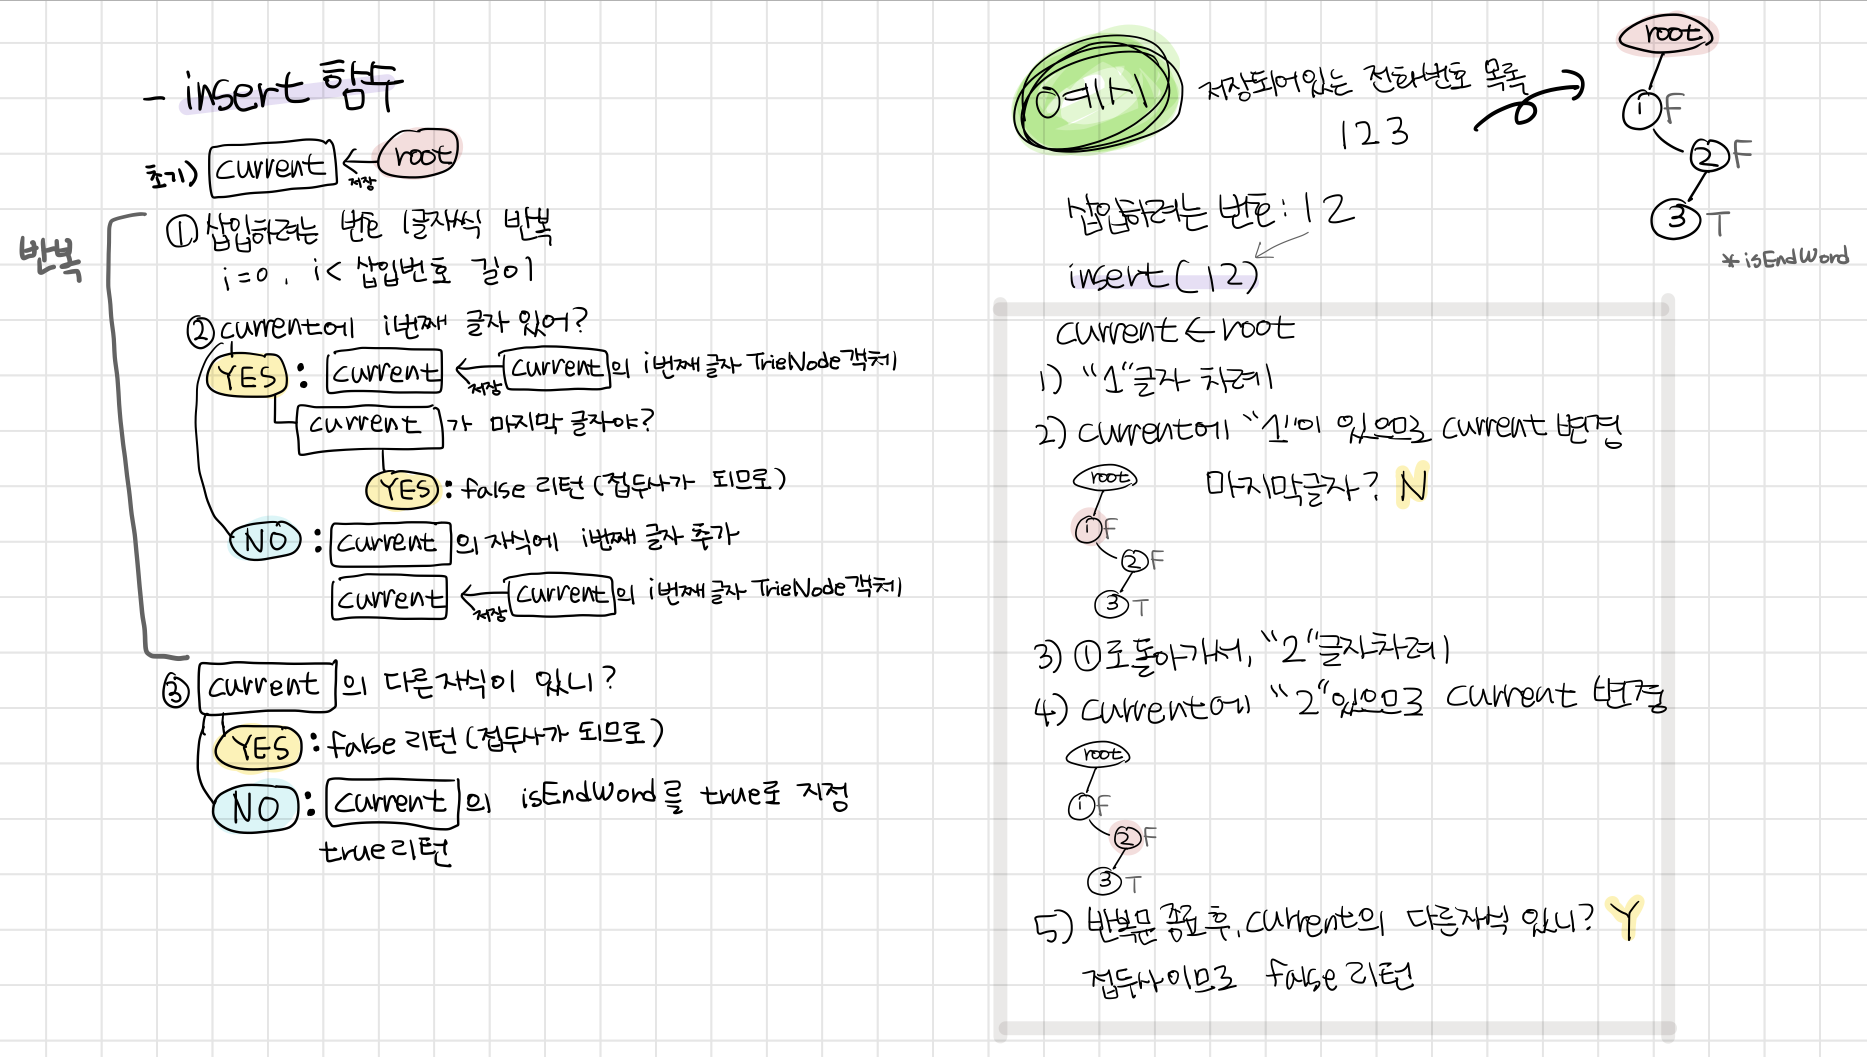 - insert 함수
초기) current ← root
저장
반복
① 삽입하려는 번호 1글자씩 반복
i=0, i< 삽입번호 길이
② current에 i번째 글자 있어?
YES : current ← current의 i번째 글자 TrieNode 객체
저장
current 가 마지막 글자야?
YES : false 리턴 (접두사가 되므로)
NO : current 의 자식에 i번째 글자 추가
current ← current의 i번째 글자 TrieNode 객체
저장
③ current 의 다른 자식이 있니?
YES : false 리턴 (접두사가 되므로)
NO : current 의 isEndWord를 true로 지정
true 리턴
예시
저장되어있는 전화번호 목록
123
root
1 F
2 F
3 T
* isEndWord
삽입하려는 번호: 12
insert(12)
current ← root
1) "1"글자 차례
2) current에 "1"이 있으므로 current 변경
마지막글자? N
root
1 F
2 F
3 T
3) ①로 돌아가서, "2"글자차례
4) current에 "2"있으므로 current 변경
root
1 F
2 F
3 T
5) 반복문 종료 후, current의 다른자식 있니? Y
접두사이므로 false 리턴